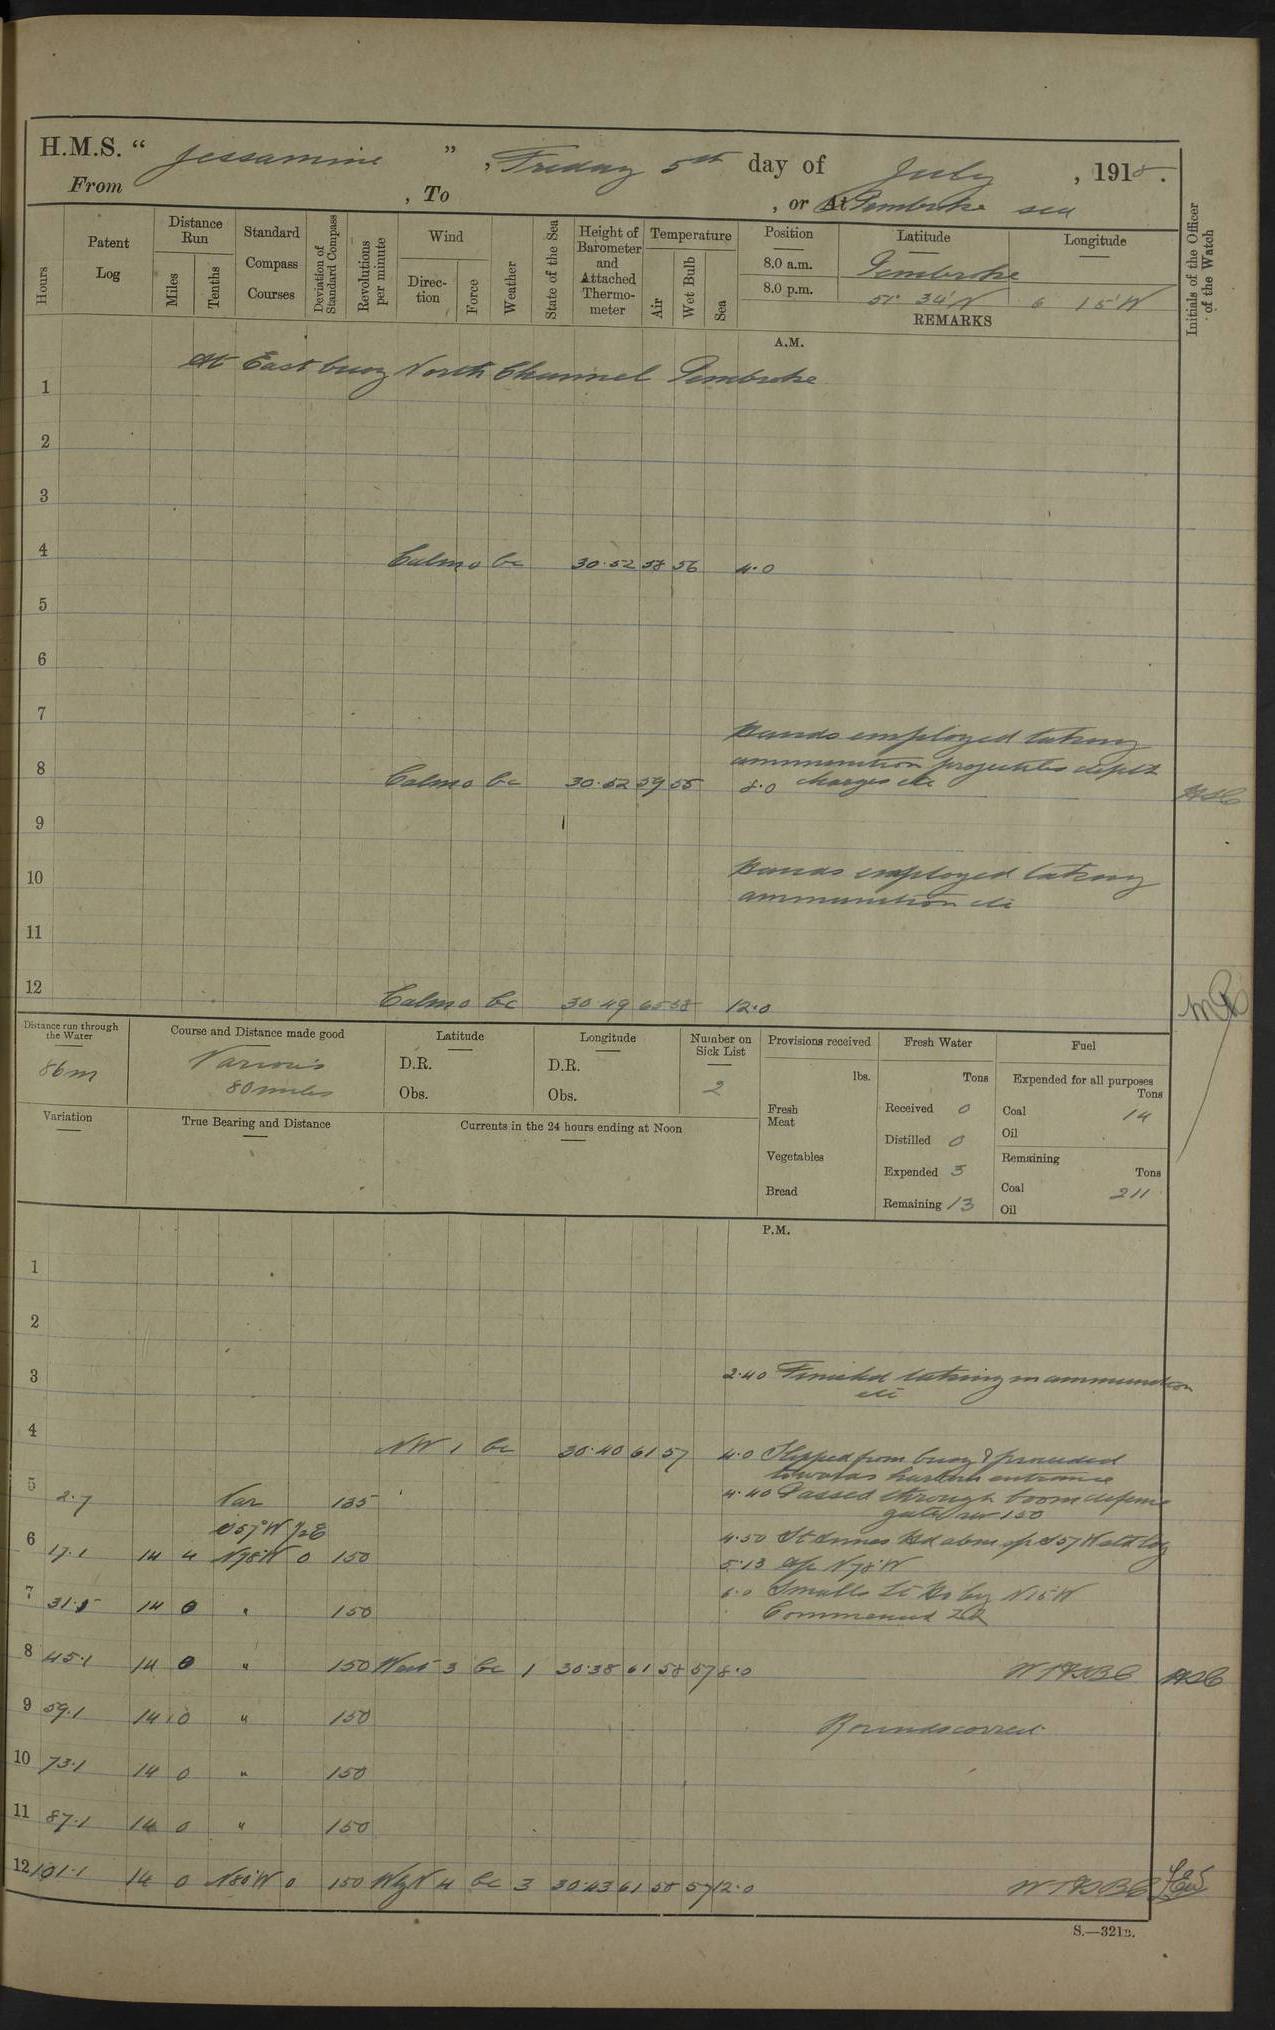 H.M.S. " Jessamine ", Friday 5th day of July, 1918.
From , To , or At Pembroke sea
Hours
Patent Log
Distance Run
Miles
Tenths
Standard Compass Courses
Deviation of Standard Compass
Revolutions per minute
Wind
Direction
Force
Weather
State of the Sea
Height of Barometer and Attached Thermometer
Temperature
Air
Wet Bulb
Sea
Position
8.0 a.m.
8.0 p.m.
Latitude
Pembroke
51° 34' N
Longitude
6 15' W
REMARKS
Initials of the Officer of the Watch
A.M.
At East buoy North Channel Pembroke
1
2
3
4 Calm 0 bc 30.52 58 56 4.0
5
6
7
Hands employed taking
ammunition projectiles depth
8 Calm 0 bc 30.52 59 55 8.0 charges etc
9
10 Hands employed taking
ammunition etc
11
12 Calm 0 bc 30.49 65 58 12.0
Distance run through the Water
86m
Course and Distance made good
Various
80 miles
Latitude
D.R.
Obs.
Longitude
D.R.
Obs.
Number on Sick List
2
Provisions received
lbs.
Fresh Meat
Vegetables
Bread
Fresh Water
Tons
Received 0
Distilled 0
Expended 3
Remaining 13
Fuel
Expended for all purposes
Tons
Coal 14
Oil
Remaining
Tons
Coal 211
Oil
Variation
True Bearing and Distance
Currents in the 24 hours ending at Noon
P.M.
1
2
3 2.40 Finished taking in ammunition
etc
4 NW 1 bc 30.40 61 57 4.0 Slipped from buoy & proceeded
towards harbour entrance
5 2.7 Var 135 4.40 Passed through boom defence
gates rev 150
S57°W
6 17.1 14 4 N78°W 0 150 4.50 St Annes Hd abm S57W
5.13 a/c N78°W
7 31.5 14 0 " 150 6.0 Smalls Lt N15°W
Commenced
8 45.1 14 0 " 150 West 3 bc 1 30.38 61 58 57 8.0
9 59.1 14 0 " 150 Rounds correct
10 73.1 14 0 " 150
11 87.1 14 0 " 150
12 101.1 14 0 N80°W 0 150 WbyN 4 bc 3 30.43 61 58 57 12.0
S.—321B.